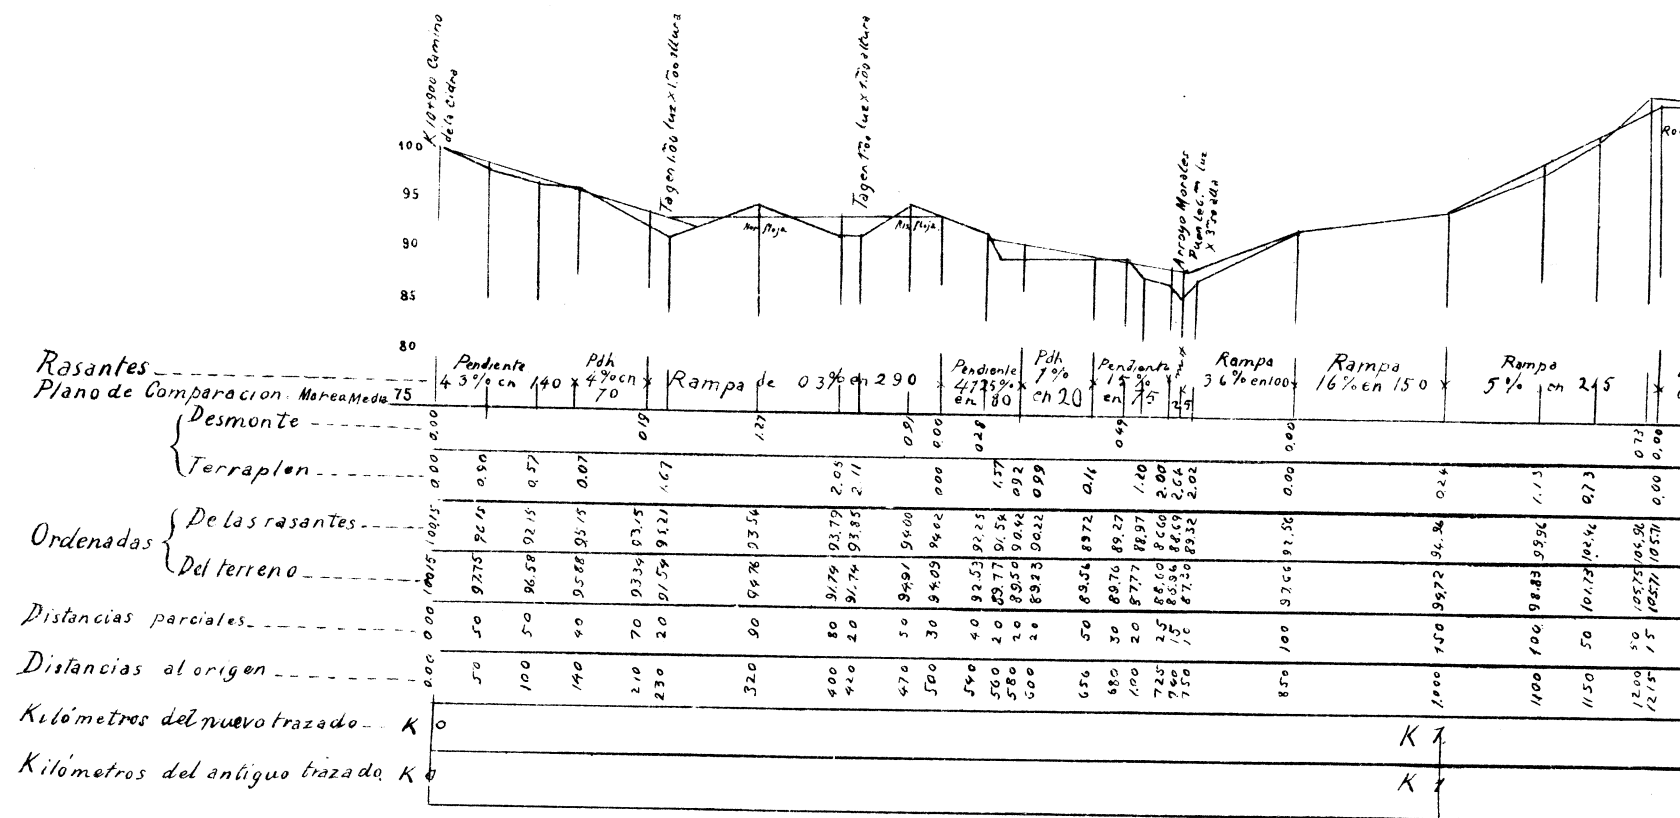 K 10+900 Camino
de la Cidra
Tagen 1.00 luz x 1.00 altura
Tagen 1.00 luz x 1.00 altura
Arroyo Morales
luz
100
95
90
85
80
Rasantes
Pendiente
4 3% en 140
Pdh
4% en
70
Rampa de 03% en 290
Pendiente
4.125%
en 80
Pdh
1%
en 20
Pendiente
1.5%
en 75
25
Rampa
3 6% en 100
Rampa
16% en 150
Rampa
5% en 215
Plano de Comparacion. Marea Media 75
Desmonte
0.00 0.19 1.27 0.91 0.00 0.28 0.49 0.00 0.73 0.00
Terraplen
0.00 0.90 0.57 0.07 1.67 2.05 2.11 0.00 1.57 0.92 0.99 0.16 1.20 2.00 2.64 2.02 0.00 0.24 1.13 0.73 0.00
Ordenadas
De las rasantes
92.15 95.15 93.15 93.54 93.79 93.85 94.00 94.02 92.25 91.54 90.42 90.22 89.72 89.27 88.97 88.69 89.32 94.96 99.96 102.46 104.96 105.71
Del terreno
97.75 96.58 95.88 93.34 91.54 94.76 91.74 91.74 94.91 94.09 92.53 89.77 89.50 89.23 89.56 89.76 87.77 87.30 94.72 98.83 101.73 105.75 105.71
Distancias parciales
0.00 50 50 40 70 20 90 80 20 50 30 40 20 20 20 50 30 20 25 15 10 100 150 100 50 50 15
Distancias al origen
0.00 50 100 140 210 230 320 400 420 470 500 540 560 580 600 650 680 700 725 740 750 850 1.000 1100 1150 1200 1215
Kilómetros del nuevo trazado K 0 K 1
Kilómetros del antiguo trazado. K 0 K 1